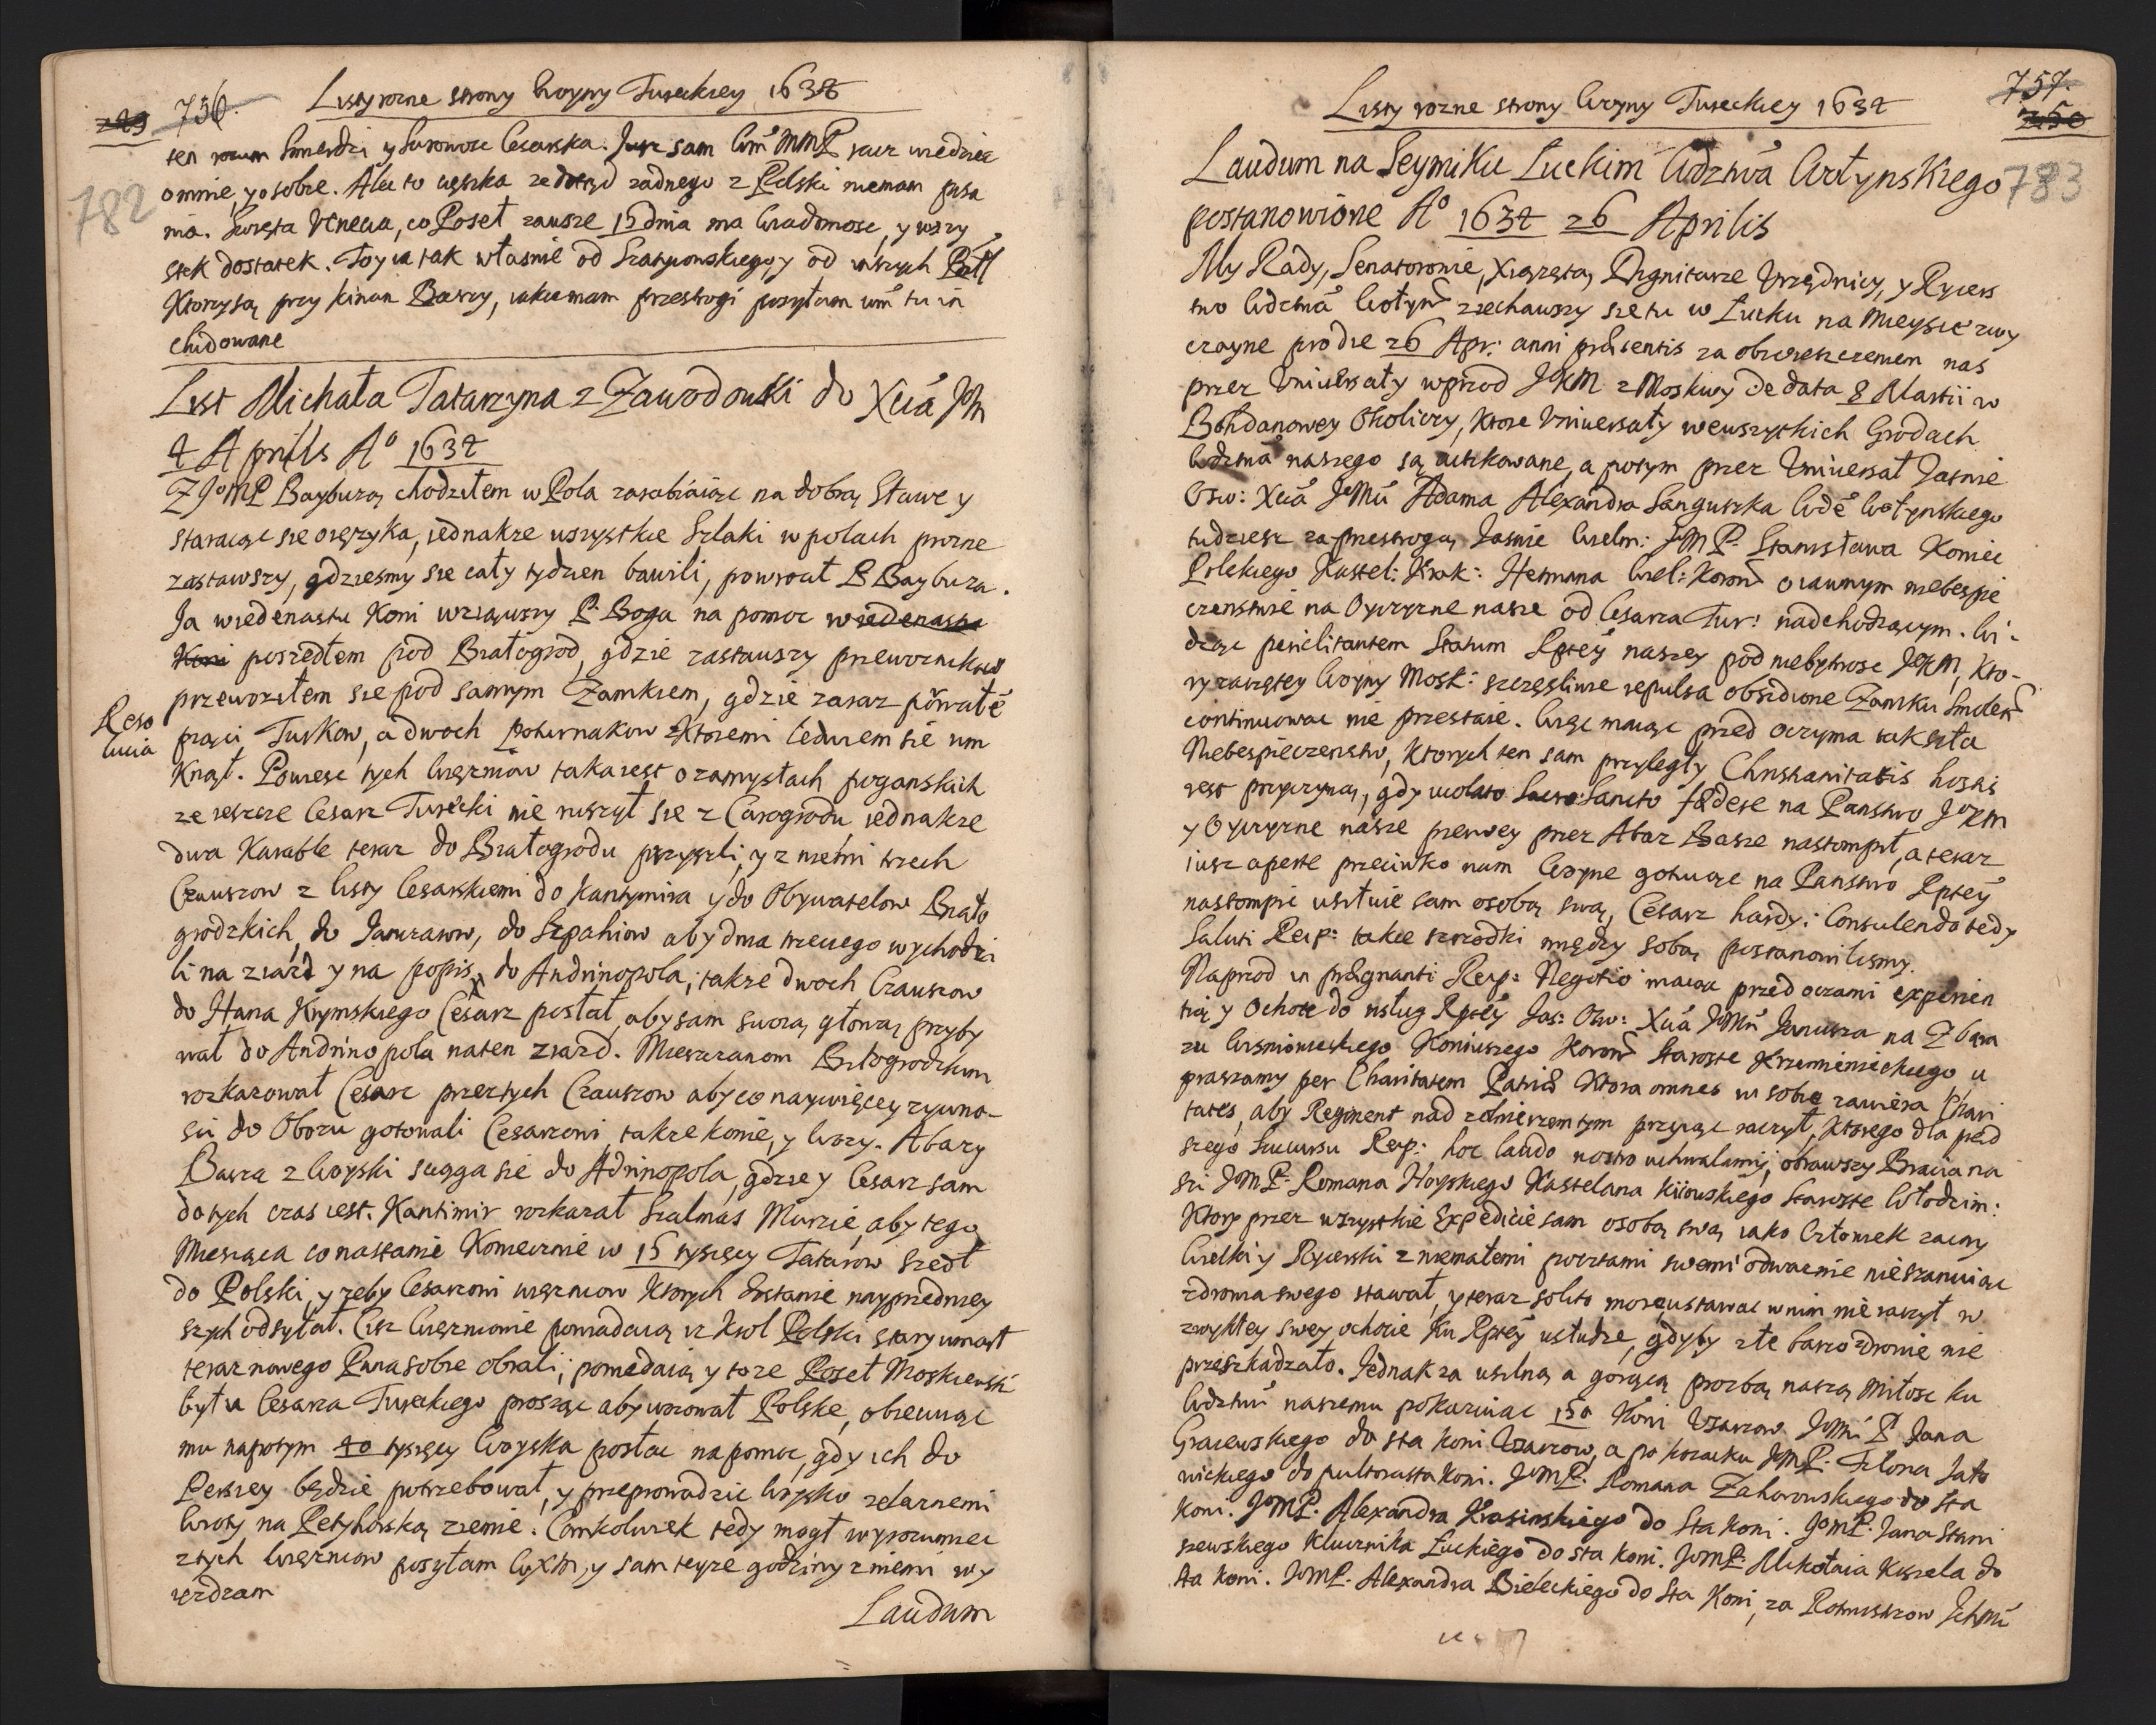 229 756. Listy rozne strony Woyny Tureckiey 1634
782
ten rozum smierdzi y surowosc Cesarska. Jusz sam Wm MMP racz wiedziec
o mnie, y o sobie. Ale to cięszka ze dotąd zadnego z Polski niemam pisa
nia. Swięta Venecia, co Poseł zawsze 15 dnia ma wiadomosc, y wszy
stek dostatek. To y ia tak własnie od Szatyionskiego, y od inszych
Ktorzy są przy kinan Baszy, iakie mam przestrogi posyłam wm tu in
cludowane
List Michała Tatarzyna z Zawodowki do Xcia Jm
4 Aprilis Aº 1634
Z JºMP Bayburą chodziłem w Pola zarabiaiąc na dobrą sławe y
staraiąc sie o ięzyka, iednakze wszystkie Szlaki w polach prozne
zastawszy, gdziesmy sie cały tydzien bawili, powrocił P Baybuza.
Ja w iedenastu Koni wziąwszy P. Boga na pomoc w iedenastu
Koni poszedłem pod Białogrod, gdzie zastawszy przewoznikow
przewoziłem sie pod samym Zamkiem, gdzie zaraz porwałe
Reso
lucia
pięci Turkow, a dwoch poturnakow z Ktoremi ledwiem sie um
Knął. Powiesc tych więzniow taka iest o zamysłach poganskich
ze ieszcze Cesarz Turecki nie ruszył sie z Carogrodu iednakze
dwa Karable teraz do Białogrodu przyszli, y z niemi trzech
Czauszow z listy Cesarskiemi do Kantymira y do Obywatelow Biało
grodzkich, do Janczarow, do Szpahiow aby dnia trzeciego wychodzi
li na ziazd y na popis do Andrinopola; takze dwoch Czauszow
do Hana Krymskiego Cesarz posłał, aby sam swoią głową przyby
wał do Andrinopola na ten ziazd. Mieszczanom Biłogrodzkim
rozkazował Cesarz przez tych Czauszow aby co naywięcey zywno-
sci do Obozu gotowali Cesarzowi, takze konie, y wozy. Abazy
Basza z woyski sciąga sie do Adrinopola, gdzie y Cesarz sam
do tych czas iest. Kantimir rozkazał Szalmas Murzie, aby tego
Miesiąca co nastanie Koniecznie w 15 tysięcy Tatarow szedł
do Polski, y zeby Cesarzowi więzniow Ktorych dostanie nayprzedniey
szych odsyłał. Cisz Więzniowie powiadaią isz Krol Polski stary umarł
teraz nowego Pana sobie obrali; powiedaią y to ze Poseł Moskiewski
był u Cesarza Tureckiego prosząc aby woiował Polske, obiecuiąc
mu napotym 40 tysięcy Woyska posłac na pomoc, gdy ich do
Persiey będzie potrzebował, y przeprowadzic Woysko zelaznemi
Wroty na Petyhorską ziemie. Comkolwiek tedy mogł wyrozumiec
z tych więzniow posyłam WXM, y sam teyze godziny z niemi wy
iezdzam
Laudum
Listy rozne strony Woyny Tureckiey 1634 757.
250
Laudum na Seymiku Łuckim Wdztwa Wołynskiego 783
postanowione Aº 1634 26 Aprilis
My Rady, Senatorowie, Xiążęta, Dignitarze Urzędnicy, y Rycers
two Wdztwa Wołyn ziechawszy sie tu w Łucku na Mieysce zwy
czayne pro die 26 Apr: anni præsentis za obwieszczeniem nas
przez Uniwersały wprzod JKM z Moskwy de data 8 Martii w
Bohdanowey Okolicy, Ktore Uniwersały we wszytkich Grodach
Wdztwa naszego są actikowane, a potym przez Uniwersał Jasnie
Osw: Xcia JeMci Adama Alexandra Sanguszka Wde Wołynskiego
tudziesz za przestrogą Jasnie Wielm: JMP. Stanisława Koniec
Polskiego Kastel: Krak: Hetmana Wiel: Koron o iawnym niebespie
czenstwie na Oyczyzne nasze od Cesarza Tur: nadchodzącym. Wi-
dząc periclitantem Statum Rptey naszey pod niebytnosc JKM, Kto-
ry zaczętey Woyny Mosk: szczęsliwie repulsa obsidione Zamku Smolen
continuowac nie przestaie. Więc maiąc przed oczyma tak zła
Niebespieczenstwo, Ktorych ten sam przyległy Christianitatis hostis
iest przyczyną, gdy violato Sacro Sancto fædere na Panstwo JKM
y Oyczyzne nasze pierwey przez Abaz Basze nastompił, a teraz
iusz aperte przeciwko nam Woyne gotuiąc na Panstwo Rptey
nastompic usiłuie sam osobą swą, Cesarz hardy: Consulendo tedy
Saluti Reip: takie szrodki między sobą postanowilismy.
Naprzod in prægnanti Reip: Negotio maiąc przed oczami experien
tią y Ochote do usług Rptey Jas: Osw: Xcia JeMci Janusza na Zbara
zu Wisniowieckiego Koniuszego Koron Staroste Krzemienieckiego u
praszamy per Charitatem Patriæ Ktora omnes in sobie zawiera Chari
tates, aby Regiment nad zołnierzem tym przyiąc raczył, Ktorego dla pręd
szego Succursu Reip: hoc laudo nostro uchwalamy, obrawszy Bracia na
szi JMP. Romana Hoyskiego Kastelana Kiiowskiego Staroste Włodzim:
Ktory przez wszystkie Expedicie sam osobą swą iako Człowiek zacny
Wielki y Rycerski z niemałemi pocztami swemi odwaznie nieszanuiąc
zdrowia swego stawał, y teraz solito more ustawac w nim nie raczył w
zwykłey swey ochocie Ku Rptey usłudze, gdyby złe barzo zdrowie nie
przeszkadzało. Jednak za usilną a gorącą prozbą naszą Miłosc ku
Wdztwu naszemu pokazuiąc 150 Koni Usarzow JeMci P Jana
Graiewskiego do sta koni Usarzow, a po kozacku JMP. Filona Jało
wickiego do pułtorasta koni. JoMP. Romana Zahorowskiego do sta
koni. JoMP. Alexandra Krasinskiego do sta koni. JoMP. Jana Stani
szewskiego Klucznika Łuckiego do sta koni. JoMP. Mikołaia Kisiela do
sta koni. JoMP. Alexandra Bieleckiego do sta Koni, za Rotmistrzow Ichmci